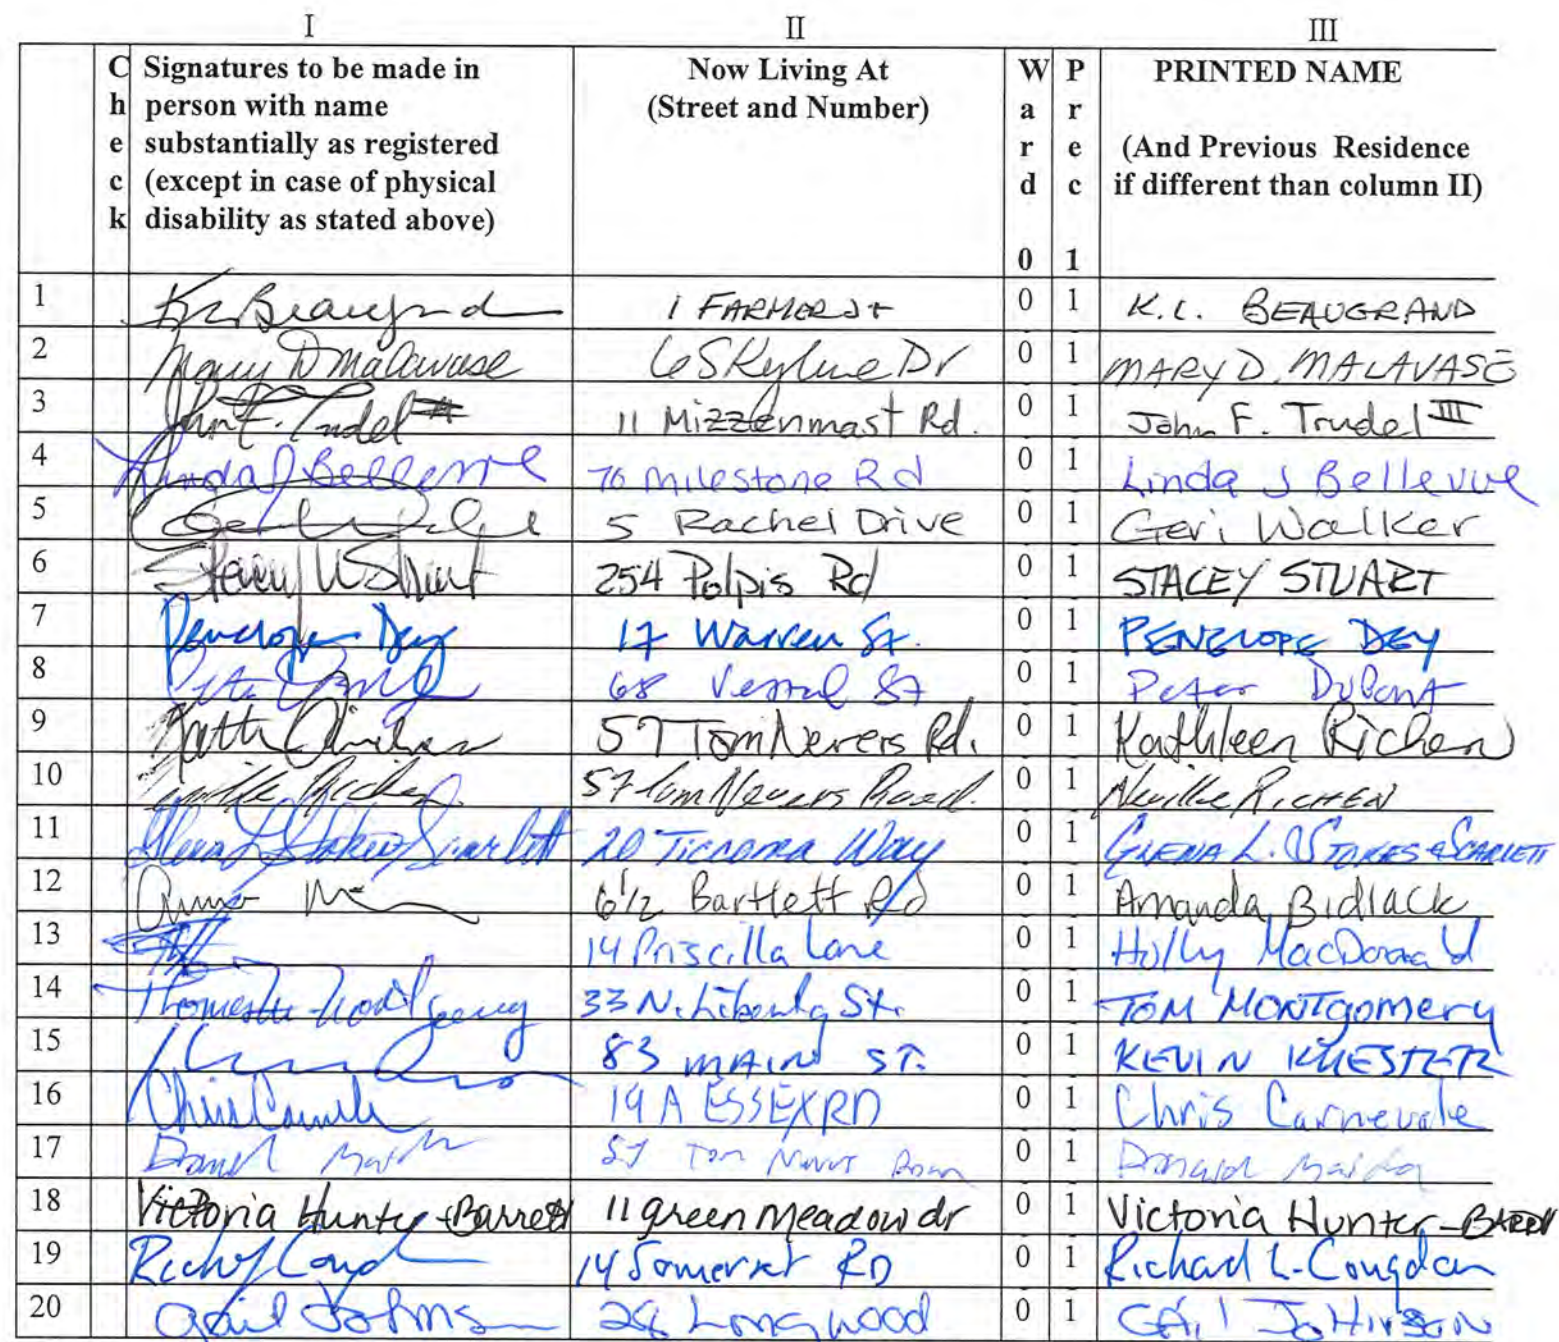 I II III
Check Signatures to be made in person with name substantially as registered (except in case of physical disability as stated above) Now Living At (Street and Number) Ward 0 Prec 1 PRINTED NAME (And Previous Residence if different than column II)
1 1 FARMER St 0 1 K.C. BEAUGRAND
2 Mary D Malavase 6 Skyline Dr 0 1 MARY D. MALAVASE
3 John F. Trudel III 11 Mizzenmast Rd. 0 1 John F. Trudel III
4 Linda J Bellevue 76 Milestone Rd 0 1 Linda J Bellevue
5 5 Rachel Drive 0 1 Geri Walker
6 Stacey W Stuart 254 Polpis Rd 0 1 STACEY STUART
7 Penelope Dey 17 Warren St. 0 1 PENELOPE DEY
8 68 Vestal St 0 1 Peter DuPont
9 57 Tom Nevers Rd. 0 1 Kathleen Richen
10 Neville Richen. 57 Tom Nevers Road. 0 1 Neville RICHEN
11 Glena L Stokes Scarlett 20 Ticcoma Way 0 1 GLENA L. STOKES-SCARLETT
12 6 1/2 Bartlett Rd 0 1 Amanda Bidlack
13 14 Priscilla Lane 0 1 Holly MacDonald
14 Montgomery 33 N. Liberty St. 0 1 TOM MONTgomery
15 83 MAIN ST. 0 1 KEVIN KUESTER
16 Chris 19 A ESSEX RD 0 1 Chris Carnevale
17 57 Tom 0 1
18 Victoria Hunter-Barrett 11 green Meadow dr 0 1 Victoria Hunter-
19 14 Somerset RD 0 1 Richard L. Congdon
20 Gail Johnson Longwood 0 1 GAil JOHNSON